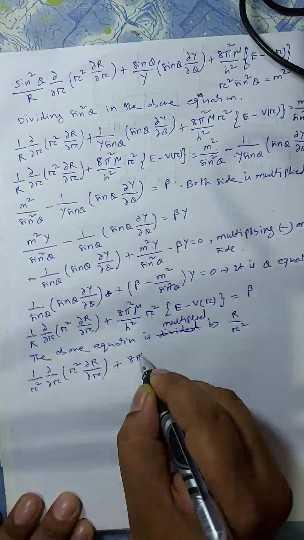 sin²θ/R ∂/∂r (r² ∂R/∂r) + sinθ/Y (sinθ ∂Y/∂θ) + 8π²μ/h² {E - V(r)}
r² sin²θ = m²
Dividing sin²θ in the above equation.
1/R ∂/∂r (r² ∂R/∂r) + 1/Y sinθ (sinθ ∂Y/∂θ) + 8π²μ/h² r² {E - V(r)} =
1/R ∂/∂r (r² ∂R/∂r) + 8π²μ/h² r² {E - V(r)} = m²/sin²θ - 1/Y sinθ (sinθ ∂Y/∂θ)
m²/sin²θ - 1/Y sinθ (sinθ ∂Y/∂θ) = β. Both side is multiplied
m²Y/sin²θ - 1/sinθ (sinθ ∂Y/∂θ) = βY
- 1/sinθ (sinθ ∂Y/∂θ) + m²Y/sin²θ - βY = 0, multiplying (-)
side.
1/sinθ (sinθ ∂Y/∂θ) + (β - m²/sin²θ) Y = 0 → it is θ equat
1/R ∂/∂r (r² ∂R/∂r) + 8π²μ/h² r² {E - V(r)} = β
The above equation is multiplied by R/r²
1/r² ∂/∂r (r² ∂R/∂r) + 8π